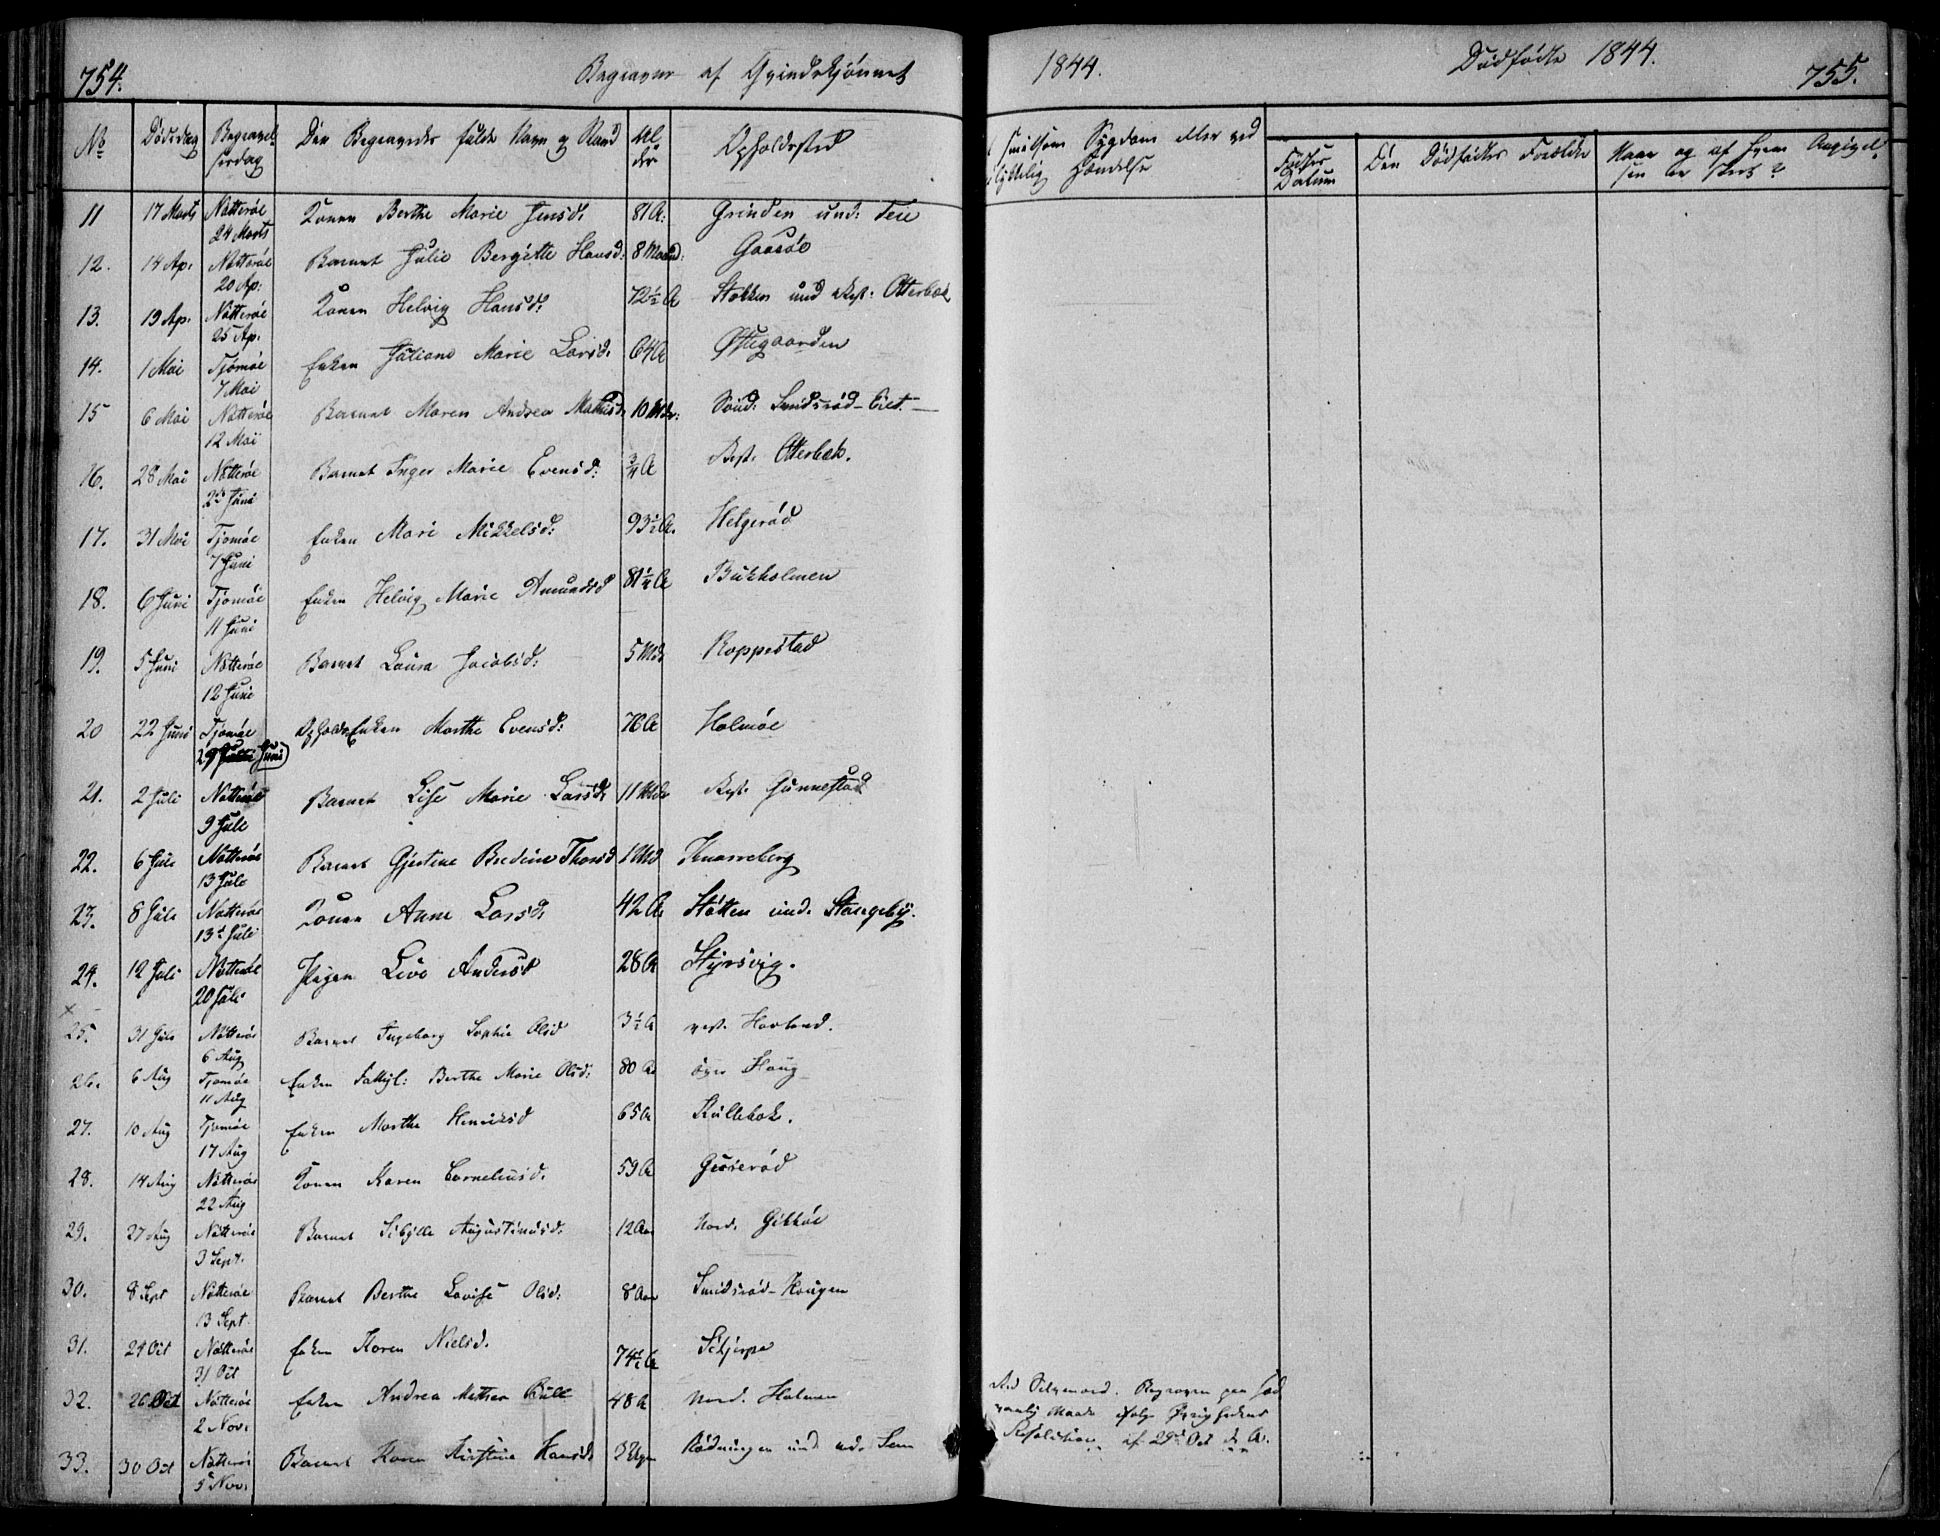 754. Begravne af Qvindekjønnet 1844. Dødfødte 1844. 755.
No Dødsdag Begravelsesdag Den Begravedes fulde Navn og Stand Alder Opholdssted smitsom Sygdom eller ved Hændelse Fødsels Datum Den Dødfødtes Forældre Naar og af hvem Angivelsen er skeet?
11 17 Marts Nøtterøe 24 Marts Konen Berthe Marie Jensd: 81 A: Grinden und: Teie
12. 14 Ap. Nøtterøe 20 Ap: Barnet Julie Bergitte Hansd: 8 Maaned: Gaasøe
13. 19 Ap. Nøtterøe 25 Ap. Konen Helvig Hansd: 72½ A Stokken und Vest: Otterbek
14. 1 Mai Tjømøe 7 Mai Enken Juliane Marie Larsd. 64 A Østegaarden
15 6 Mai Nøtterøe 12 Mai Barnet Maren Andrea Mathisd: 10 Mdr: Sønd: Smidsrød-Eiet.
16. 28 Mai Nøtterøe Juni Barnet Inger Marie Evensd: ¾ A Vest. Otterbek.
17. 31 Mai Tjømøe 7 Juni Enken Mari Mikkelsd: 93½ A. Helgerød
18. 6 Juni Tjømøe 11 Juni Enken Helvig Marie Amundsd 81¼ A Bukholmen
19. 5 Juni Nøtterøe 12 Juni Barnet Laura Jacobsd: 5 Mdr Koppestad
20 22 Juni Tjømøe 29 Juni Enken Marthe Evensd: 76 A Holmøe
21. 2 Juli Nøtterøe 9 Juli Barnet Lise Marie Larsd. 11 Mdr Vest: Gunnestad
22. 6 Juli Nøtterøe 13 Juli Barnet Gjertine Bredine Thorsd 1 Md Knarreberg
23. 8 Juli Nøtterøe 13d Juli Konen Anne Larsd. 42 A. Støtten und. Stangeby.
24. 12 Juli Nøtterøe 20 Juli Pigen Live Andersd 28 A Styrsvig.
25. 31 Juli Nøtterøe 6 Aug Barnet Ingeborg Sophie Olsd 3½ A vest. Hovland.
26. 6 Aug Tjømøe 11 Aug Enken Fattigl: Berthe Marie Olsd: 80 A øvre Haug
27. 10 Aug Tjømøe 17 Aug Enken Marthe Henriksd 65 A Rullebak.
28. 14 Aug Nøtterøe 22 Aug Konen Karen Corneliusd. 59 A Gusserød
29. 27 Aug Nøtterøe 3 Sept. Barnet Sibylle Augustinusd: 12 Aar Nord. Gikkøe
30. 8 Sept Nøtterøe 13 Sept Barnet Berthe Lovise Olsd: 8 Aar Smidsrød-Haugen
31. 24 Oct Nøtterøe 31 Oct Enken Karen Nielsd. 74½ A Skjerpe
32. 26 Oct Nøtterøe 2 Nov: Enken Andrea Mathea Bull 48 A Nord. Holmen Ved Selvmord. Begraven paa sædvanlig Maade ifølge Øvrighedens Resolution af 29d Oct d. A.
33. 30 Oct Nøtterøe 5 Nov. Barnet Karen Kirstine Hansd. 3 Uger Rødningen und nd. Sem